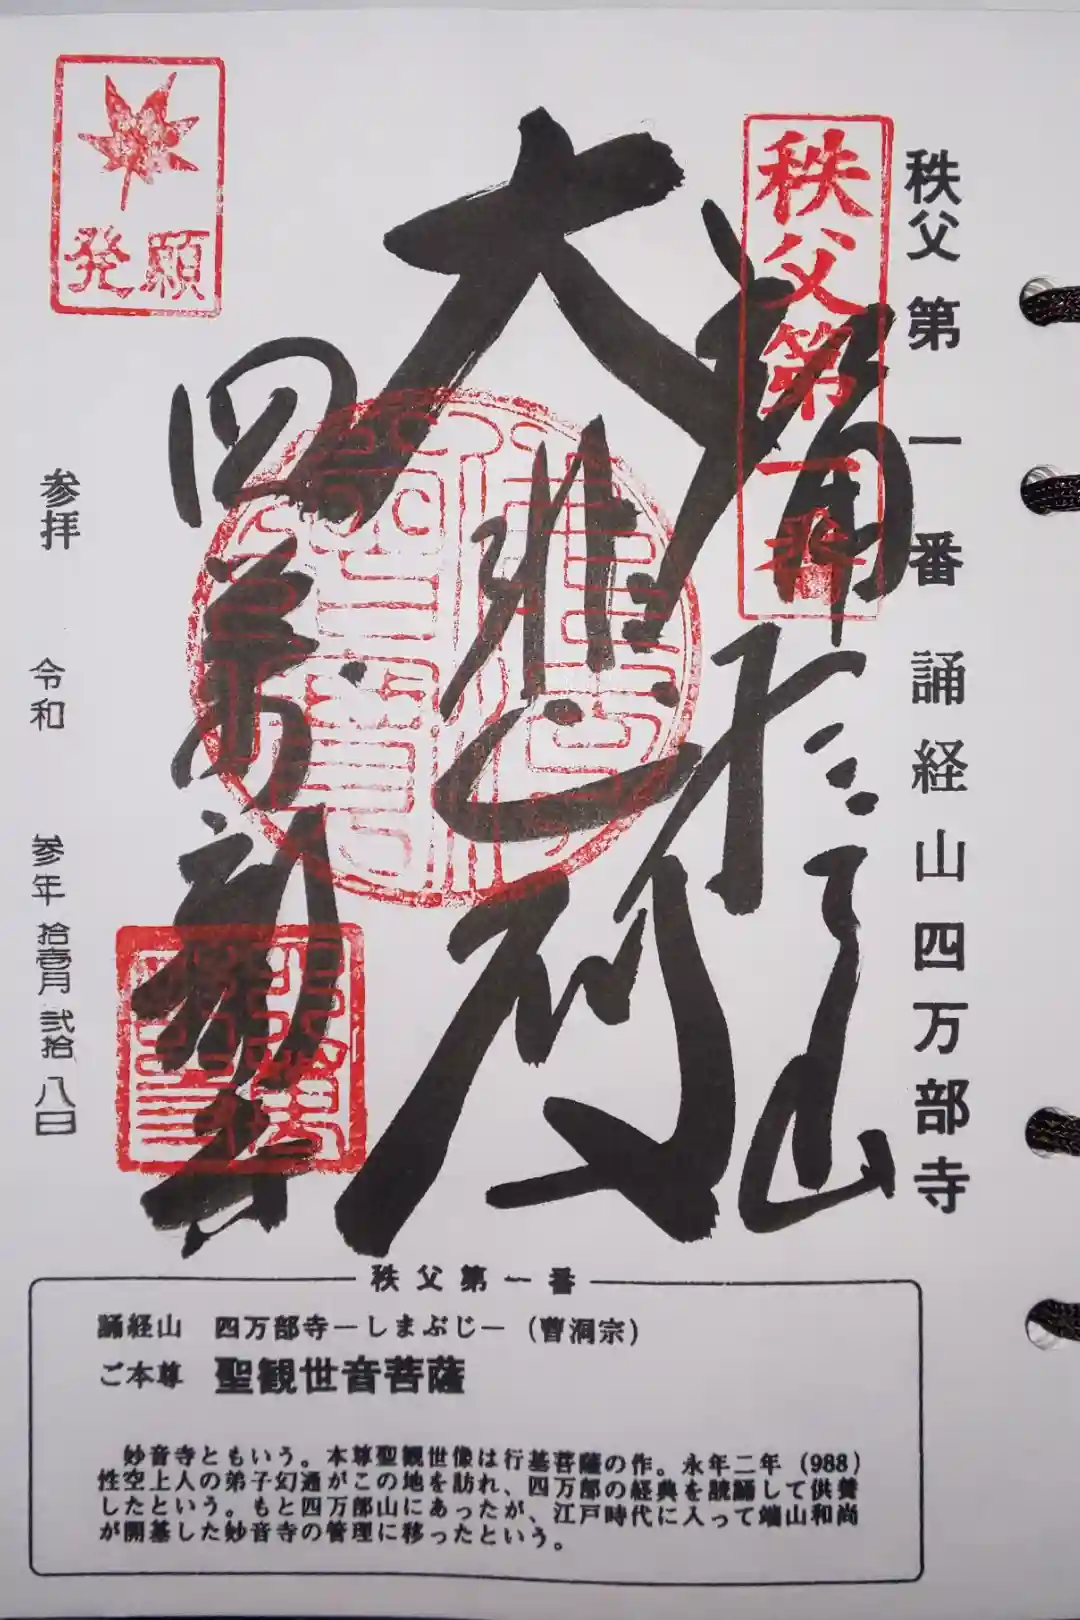 秩父第一番 誦経山四万部寺
秩父第一番
誦経山
大悲殿
四萬部寺
発願
参拝 令和 参年 拾壱月 弐拾八日
秩父第一番
誦経山 四万部寺－しまぶじ－（曹洞宗）
ご本尊 聖観世音菩薩
妙音寺ともいう。本尊聖観世像は行基菩薩の作。永年二年（988）
性空上人の弟子幻通がこの地を訪れ、四万部の経典を読誦して供賛
したという。もと四万部山にあったが、江戸時代に入って端山和尚
が開基した妙音寺の管理に移ったという。